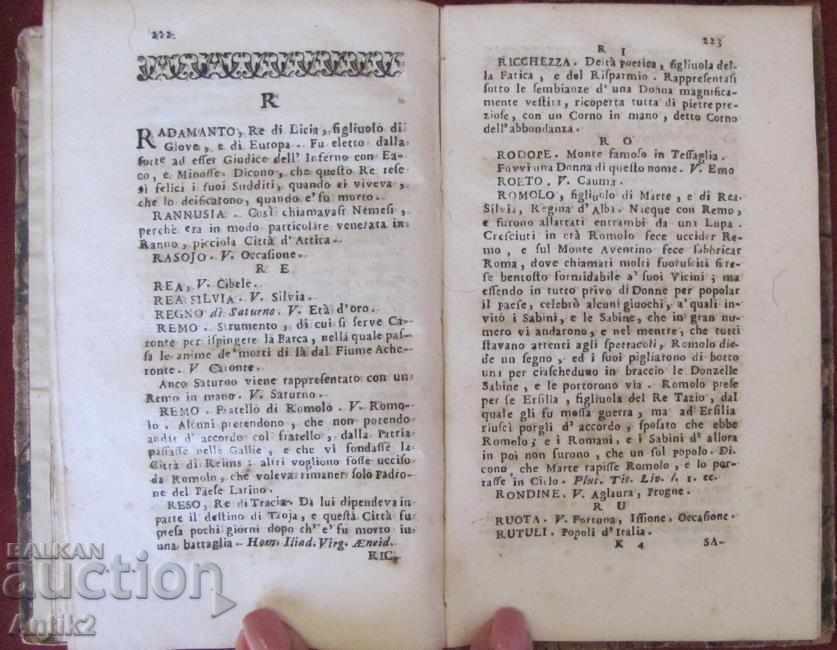 222
R
RADAMANTO, Re di Licia, figliuolo di
Giove, e di Europa. Fu eletto dalla
sorte ad esser Giudice dell' Inferno con Ea-
co, e Minosse. Dicono, che questo Re rese
sì felici i suoi Sudditi, quando ei viveva,
che lo deificarono, quando e' fu morto.
RANNUSIA. Così chiamavasi Nemesi,
perchè era in modo particolare venerata in
Rannò, picciola Città d' Attica.
RASOJO. V. Occasione.
R E
REA, V. Cibele.
REA SILVIA. V. Silvia.
REGNO di Saturno. V. Età d'oro.
REMO. Strumento, di cui si serve Ca-
ronte per ispingere la Barca, nella quale pas-
sa le anime de' morti di là dal Fiume Ache-
ronte. V Caronte.
Anco Saturno viene rappresentato con un
Remo in mano. V. Saturno.
REMO. Fratello di Romolo. V. Romo-
lo. Alcuni pretendono, che non potendo
andar d' accordo col fratello, dalla Patria
passasse nelle Gallie, e che vi fondasse la
Città di Reims: altri vogliono fosse ucciso
da Romolo, che voleva rimaner solo Padro-
ne del Paese Latino.
RESO, Re di Tracia. Da lui dipendeva in
parte il destino di Troja, e questa Città fu
presa pochi giorni dopo ch' e' fu morto in
una battaglia. Hom. Iliad. Virg. Æneid.
RIC-
223
R I
RICCHEZZA. Deità poetica, figliuola del-
la Fatica, e del Risparmio. Rappresentasi
sotto le sembianze d' una Donna magnifica-
mente vestita, ricoperta tutta di pietre pre-
ziose, con un Corno in mano, detto Corno
dell' abbondanza.
R O
RODOPE. Monte famoso in Tessaglia.
Fuvvi una Donna di questo nome. V. Emo
ROETO. V. Cauma.
ROMOLO, figliuolo di Marte, e di Rea
Silvia, Regina d' Alba. Nacque con Remo,
e furono allattati entrambi da una Lupa.
Cresciuti in età Romolo fece uccider Re-
mo, e sul Monte Aventino fece fabbricar
Roma, dove chiamati molti fuorusciti si re-
se bentosto formidabile a' suoi Vicini; ma
essendo in tutto privo di Donne per popolar
il paese, celebrò alcuni giuochi, a' quali in-
vitò i Sabini, e le Sabine, che in gran nu-
mero vi andarono, e nel mentre, che tutti
stavano attenti agli spettacoli, Romolo die-
de un segno, ed i suoi pigliarono di botto
uni per ciascheduno in braccio le Donzelle
Sabine, e le portorono via. Romolo prese
per se Ersilia, figliuola del Re Tazio, dal
quale gli fu mossa guerra, ma ad Ersilia
riuscì porgli d' accordo, sposato che ebbe
Romolo; e i Romani, e i Sabini d' allora
in poi non furono, che un sol popolo. Di-
cono, che Marte rapisse Romolo, e lo por-
tasse in Cielo. Plut. Tit. Liv. l. 1. ec.
RONDINE. V. Aglaura, Progne.
R U
RUOTA. V. Fortuna, Issione, Occasione.
RUTULI. Popoli d' Italia.
K 4 SA-
BALKAN
auction
Antik2